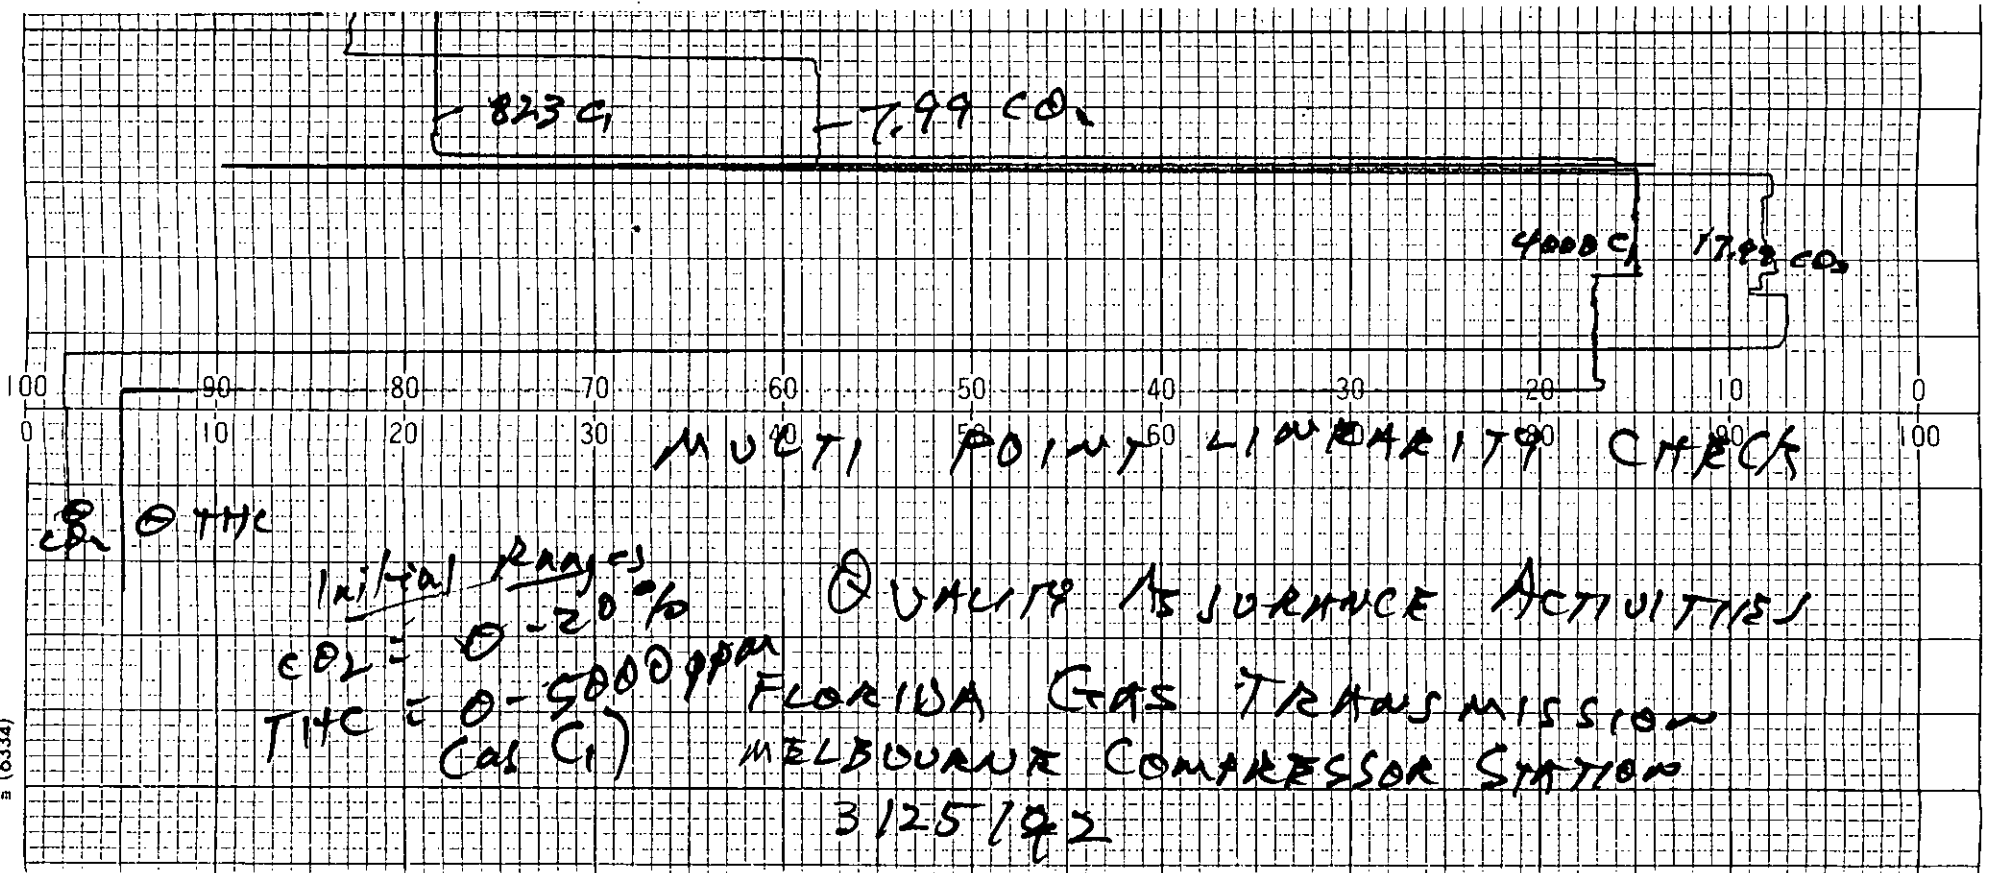 823 C1
7.99 CO2
4000 C1
17.98 CO2
100 90 80 70 60 50 40 30 20 10 0
0 10 20 30 60 80 90 100
MULTI POINT LINEARITY CHECK
0 CO2
0 THC
Initial Ranges
CO2 = 0-20%
THC = 0-5000 ppm
(as C1)
QUALITY ASSURANCE ACTIVITIES
FLORIDA GAS TRANSMISSION
MELBOURNE COMPRESSOR STATION
3/25/92
(8334)